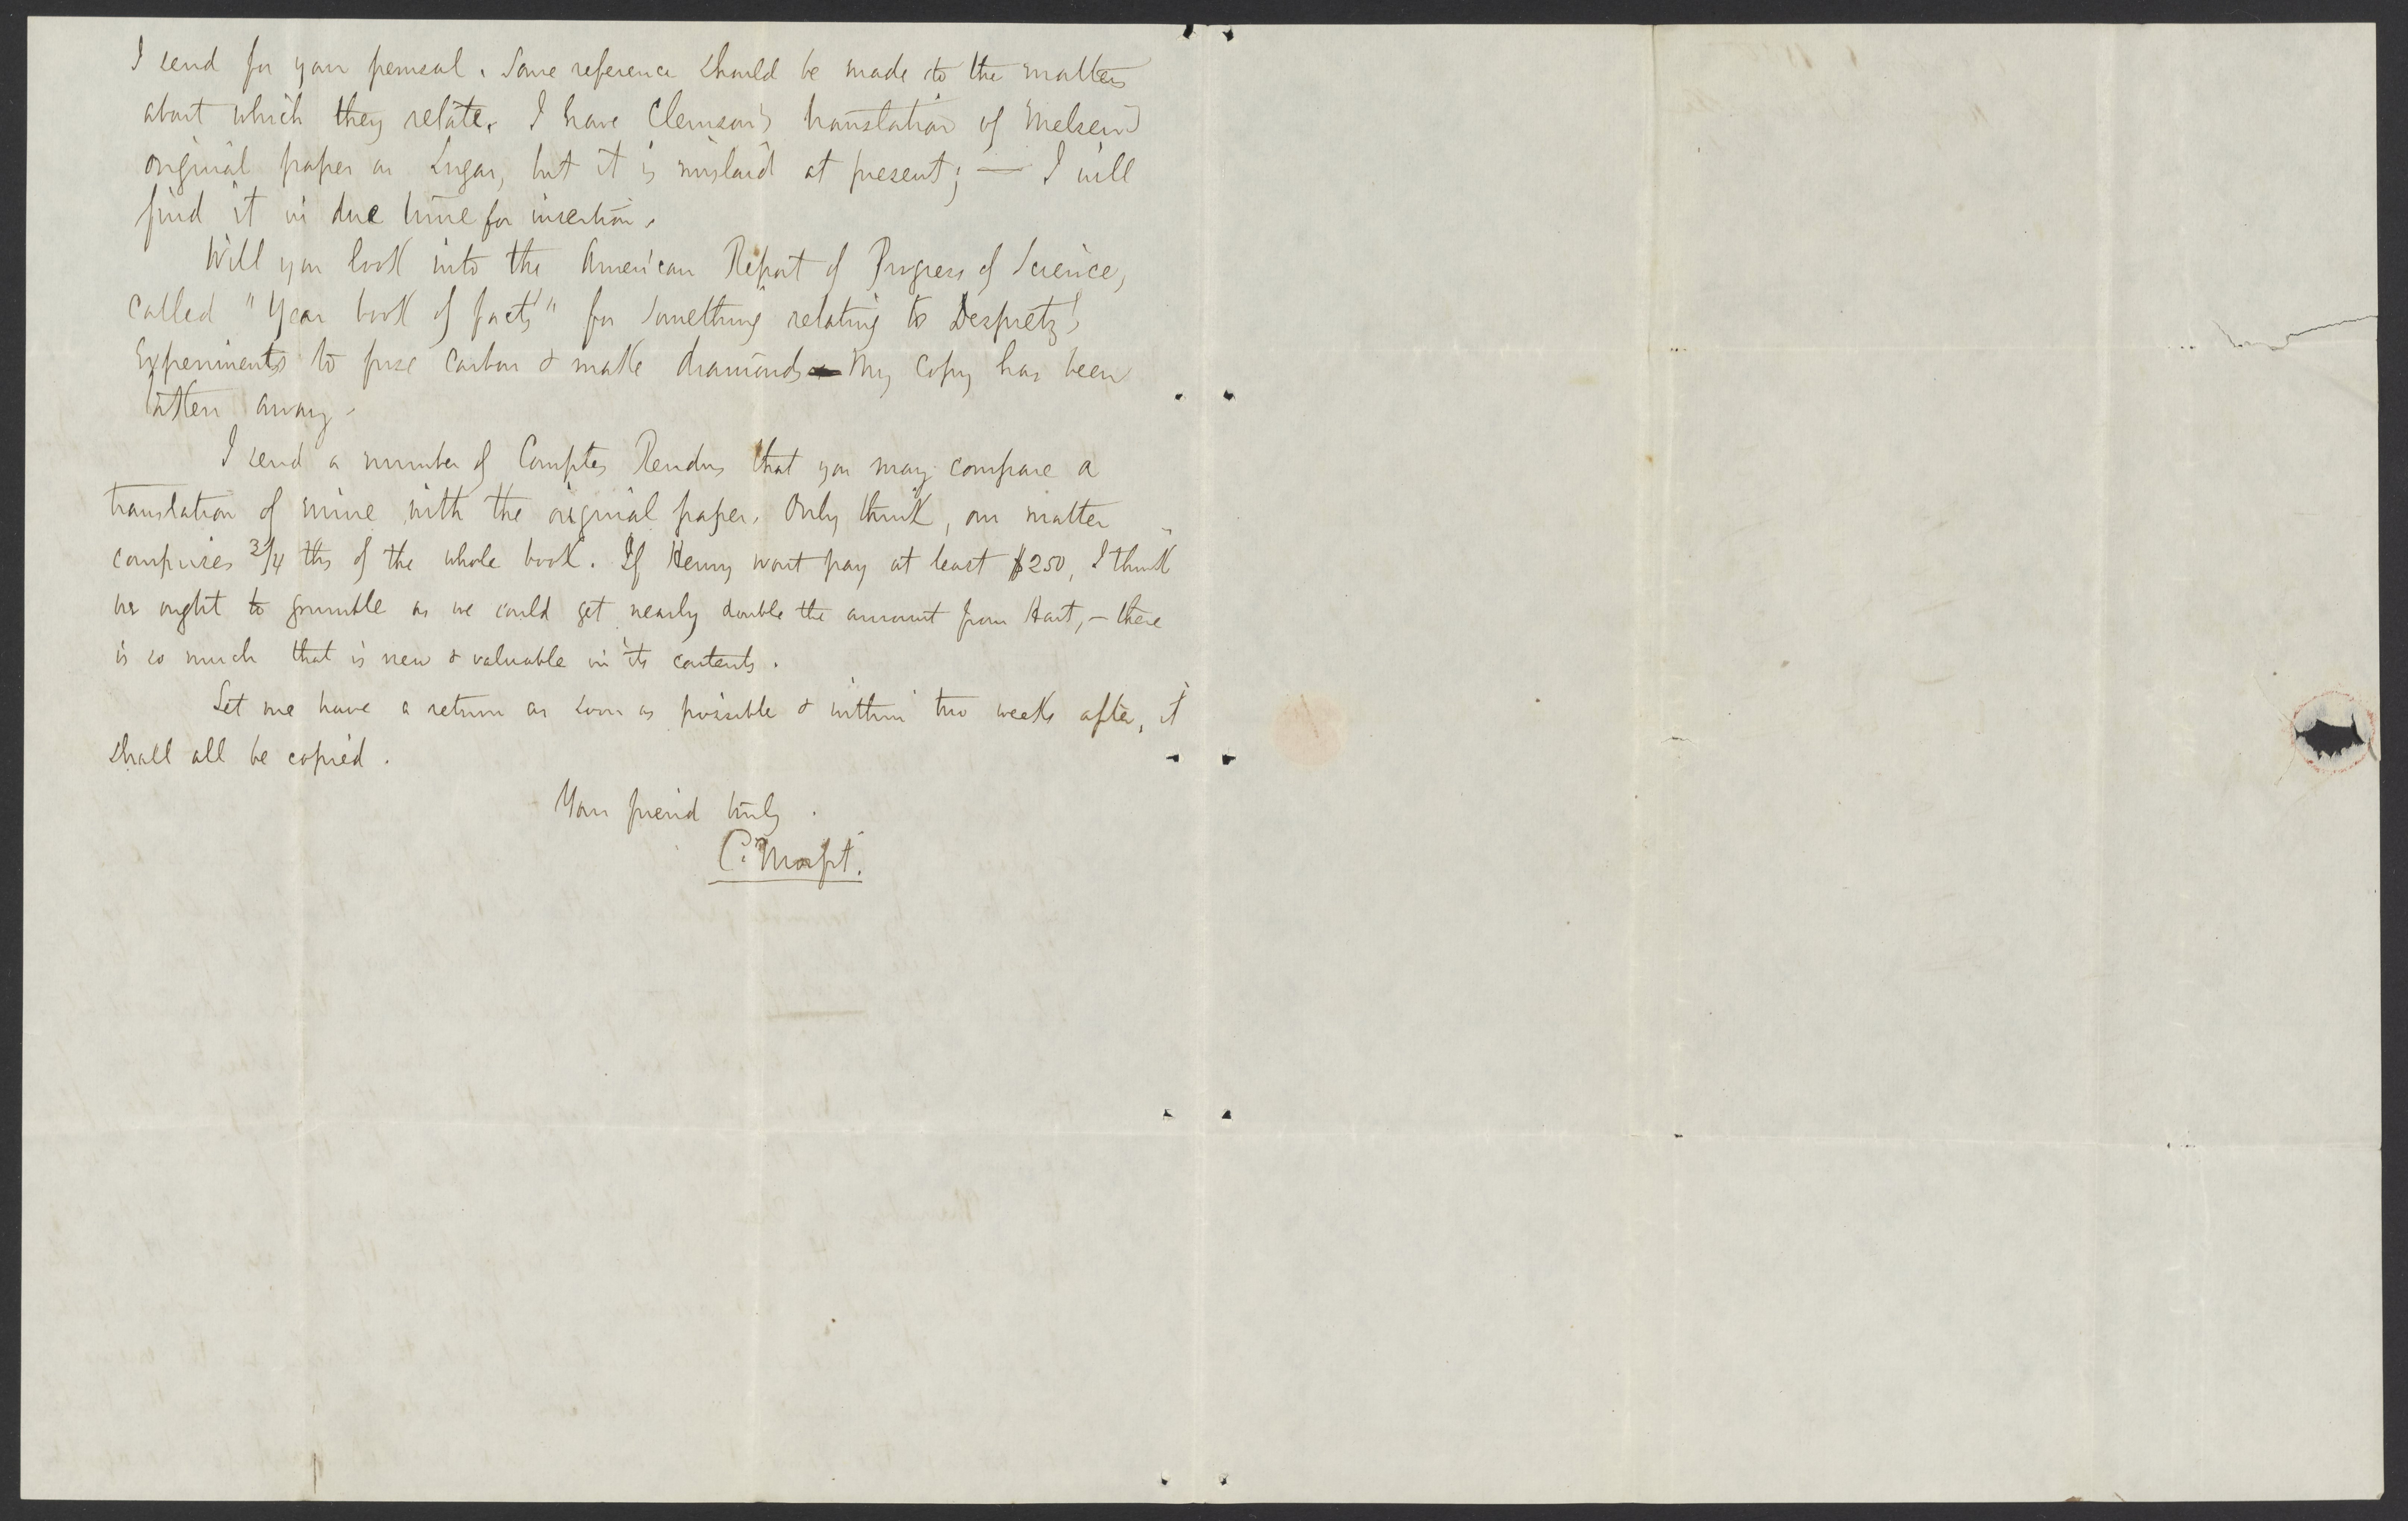 I send for your perusal. Some reference should be made to the matters
about which they relate. I have Clemson's translation of Melsen's
original paper on Sugar, but it is mislaid at present; — I will
find it in due time for insertion.
Will you look into the American Report of Progress of Science,
called "Year book of facts" for something relating to Despretz's
Experiments to fuse Carbon & make diamonds My copy has been
taken away.
I send a number of Comptes Rendus that you may compare a
translation of mine with the original paper. Only think, our matter
comprises 3/4 ths of the whole book. If Henry wont pay at least $250, I think
we ought to grumble as we could get nearly double the amount from Hart, – there
is so much that is new & valuable in its contents.
Let me have a return as soon as possible & within two weeks after, it
shall all be copied.
Your friend truly
C. Morfit.